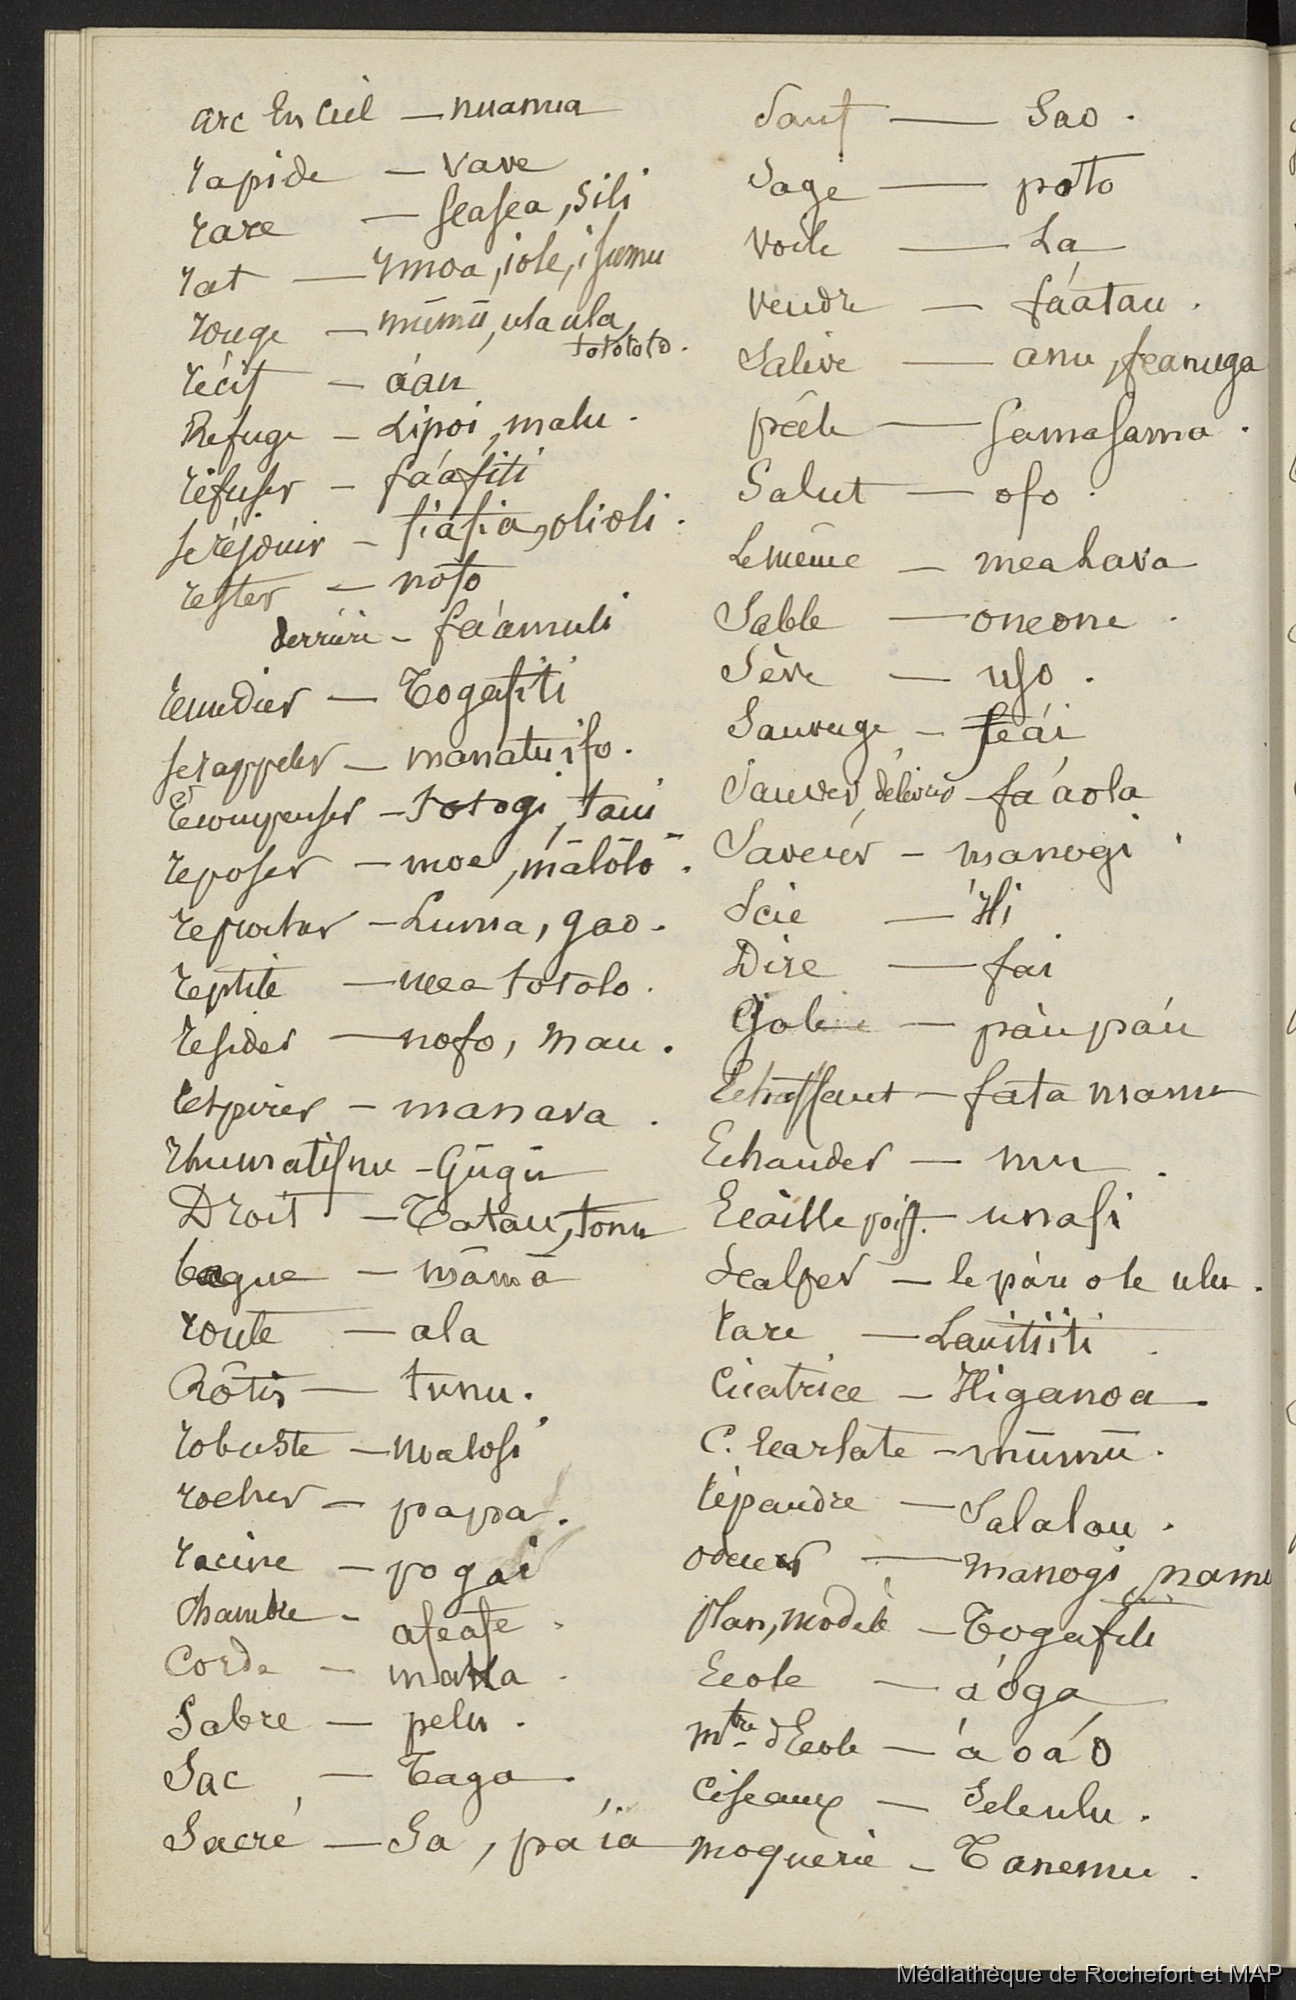 Arc En Ciel — nuanua
rapide — vave
rare — seasea, sili
rat — ymoa, iole, isumu
rouge — mūmū, ula ula,
totototo.
récit — áau
Refuge — Lipoi, malu.
réfuser — fá'afiti
se réjouir — fiafia, olioli.
rester — nofo
derrière — fa'amuli
remedier — Togafiti
se rappeler — manatu ifo.
Récompenser — totogi, taui
reposer — moe, mālōlō.
reprocher — Luma, gao.
reptile — mea totolo.
résider — nofo, mau.
respirer — manava.
Rhumatisme — Gūgū
Droit — Tatau, tonu
bague — māmā
route — ala
Rôtir — tunu.
robuste — malosi
rocher — papa.
racine — pogai
Chambre — afeafe.
Corde — maea.
Sabre — pelu.
Sac — Taga.
Sacré — Sa, paía
Sauf — Sao.
Sage — poto
voile — La
vendre — fáatau.
Salive — anu, feanuga
pêle — samasama.
Salut — ofo.
Le même — mea lava
Sable — oneone.
Sève — uso.
Sauvage — feái
Sauver, délivrer — fa'aola
Saveur — manogi
Scie — Ili
Dire — fai
Gale — páupáu
Echaffaut — fata manu
Echauder — mu.
Ecaille poiss. — unafi
Scalper — le páu o le ulu.
rare — Lauitiiti.
Cicatrice — Higanoa.
C. Ecarlate — mūmū.
répandre — Salalau.
odeur — manogi, namu
plan, modèle — Togafiti
Ecole — áoga
mtre d'Ecole — áoáo
Ciseaux — Seleulu.
moquerie — Tanemu.
Médiathèque de Rochefort et MAP